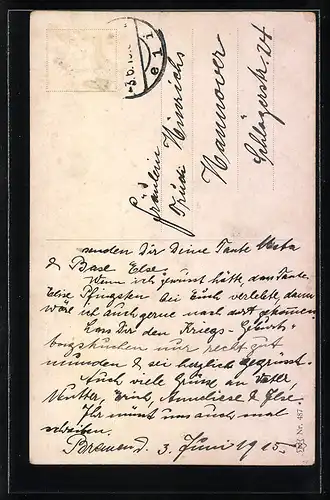 Fräulein
Trude Hinrichs
Hannover
Schlägerstr. 24
senden Dir Deine Tante Meta
& Base Else.
Wenn ich gewusst hätte, dass Tante
Elise Pfingsten bei Euch verlebte, dann
wäre ich auch gerne nach dort gekommen.
Lass Dir den Kriegs-Geburts-
tagskuchen nur recht gut
munden & sei herzlich gegrüsst.
Auch viele Grüsse an Vater,
Mutter, Erich, Anneliese & Else.
Ihr müsst uns auch mal
schreiben.
Bremen d. 3. Juni 1915
Nr. 487